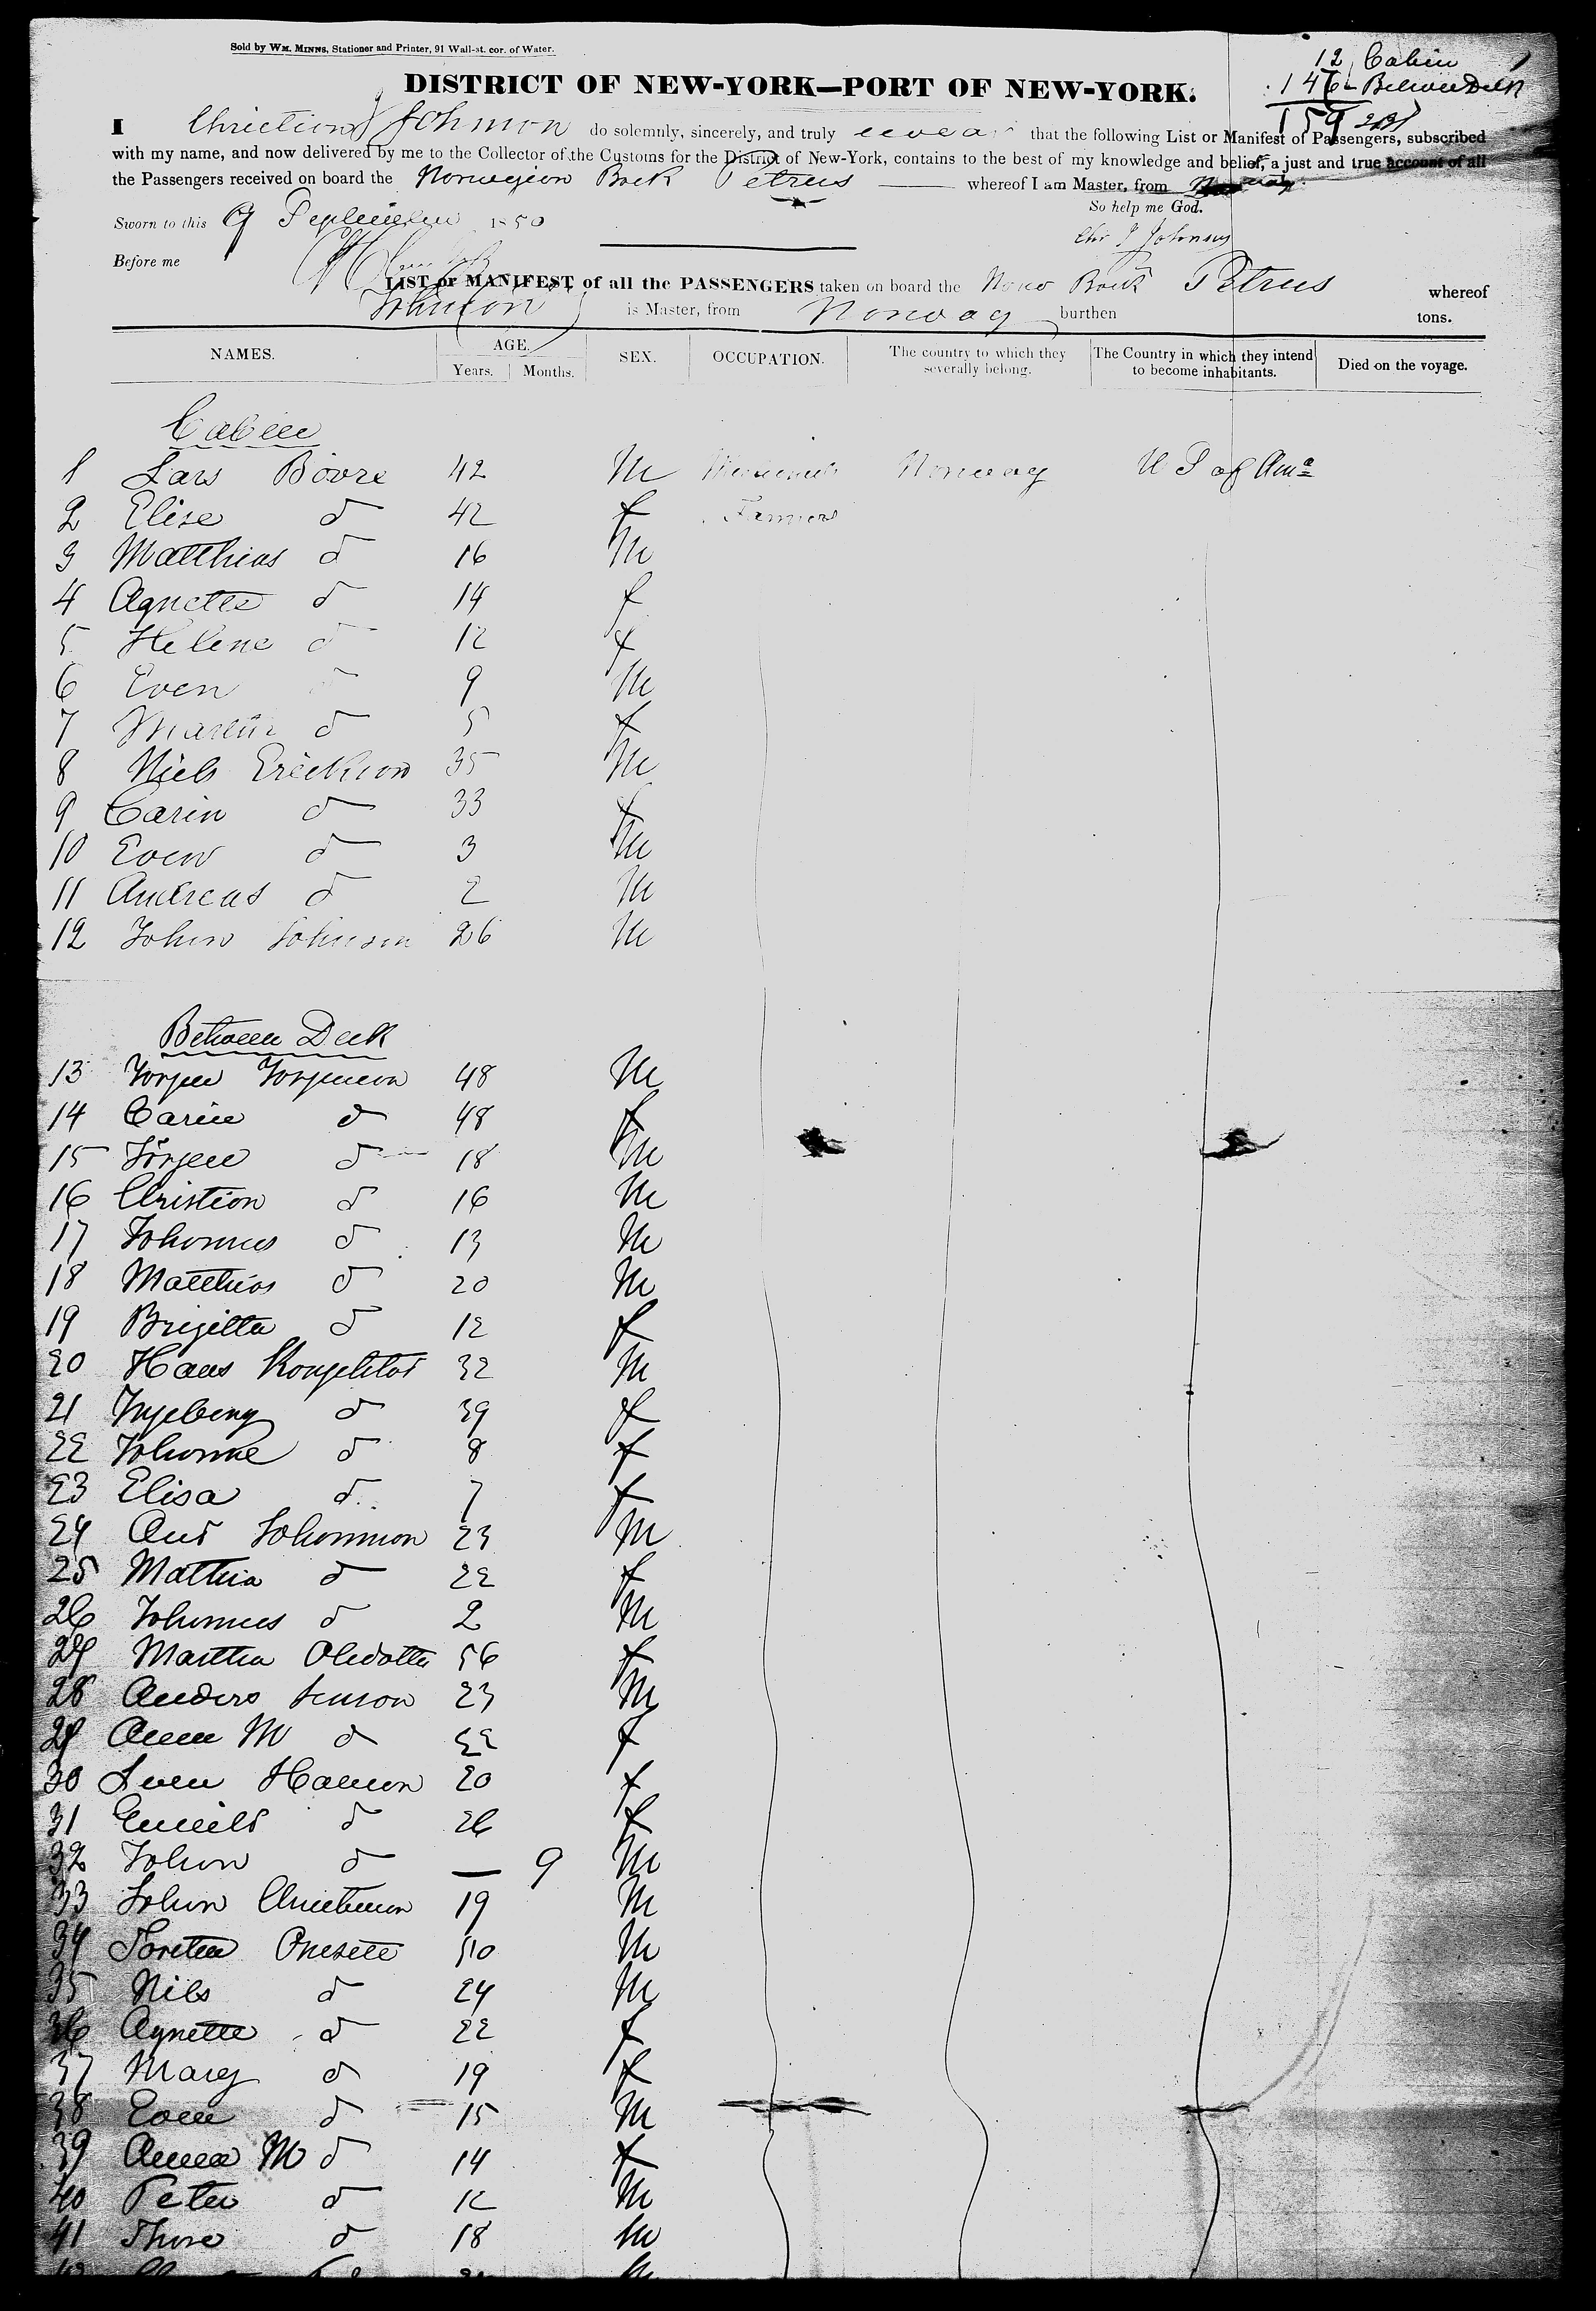 Sold by WM. MINNS, Stationer and Printer, 91 Wall-st. cor. of Water.
12 Cabin
146 Between Deck
DISTRICT OF NEW-YORK—PORT OF NEW-YORK.
I Christian J Johnson do solemnly, sincerely, and truly swear that the following List or Manifest of Passengers, subscribed
with my name, and now delivered by me to the Collector of the Customs for the District of New-York, contains to the best of my knowledge and belief, a just and true account of all
the Passengers received on board the Norwegian Bark Petrus whereof I am Master, from Norway.
So help me God.
Sworn to this 9 September 1850
Chr J Johnson
Before me
LIST or MANIFEST of all the PASSENGERS taken on board the Norw Bark Petrus whereof
Johnson is Master, from Norway burthen tons.
NAMES. AGE. Years. Months. SEX. OCCUPATION. The country to which they severally belong. The Country in which they intend to become inhabitants. Died on the voyage.
Cabin
1 Lars Bövre 42 M Norway U S of Ama
2 Elise d 42 f Farmers
3 Matthias d 16 M
4 Agnette d 14 f
5 Helene d 12 f
6 Even d 9 M
7 d 5 f
8 Niels Erickson 35 M
9 Carin d 33 f
10 Even d 3 M
11 Andreas d 2 M
12 John Johnson 26 M
Between Deck
13 Jorgen Jorgenson 48 M
14 Carin d 48 f
15 Jörgen d 18 M
16 Christian d 16 M
17 Johannes d 13 M
18 Matthias d 20 M
19 Brigitta d 12 f
20 Hans 32 M
21 Ingeborg d 39 f
22 Johanne d 8 f
23 Elisa d 7 f
24 And Johannson 23 M
25 Mathia d 22 f
26 Johannes d 2 M
27 Martha Olsdatter 56 f
28 Anders Jenson 23 M
29 Anne M d 22 f
30 Sven Hanson 20 f
31 d 26 f
32 Johan d — 9 M
33 John Christenson 19 M
34 50 M
35 Nils d 24 M
36 Agnette d 22 f
37 Mary d 19 f
38 Even d 15 M
39 Anna M d 14 f
40 Peter d 12 M
41 Thore d 18 M